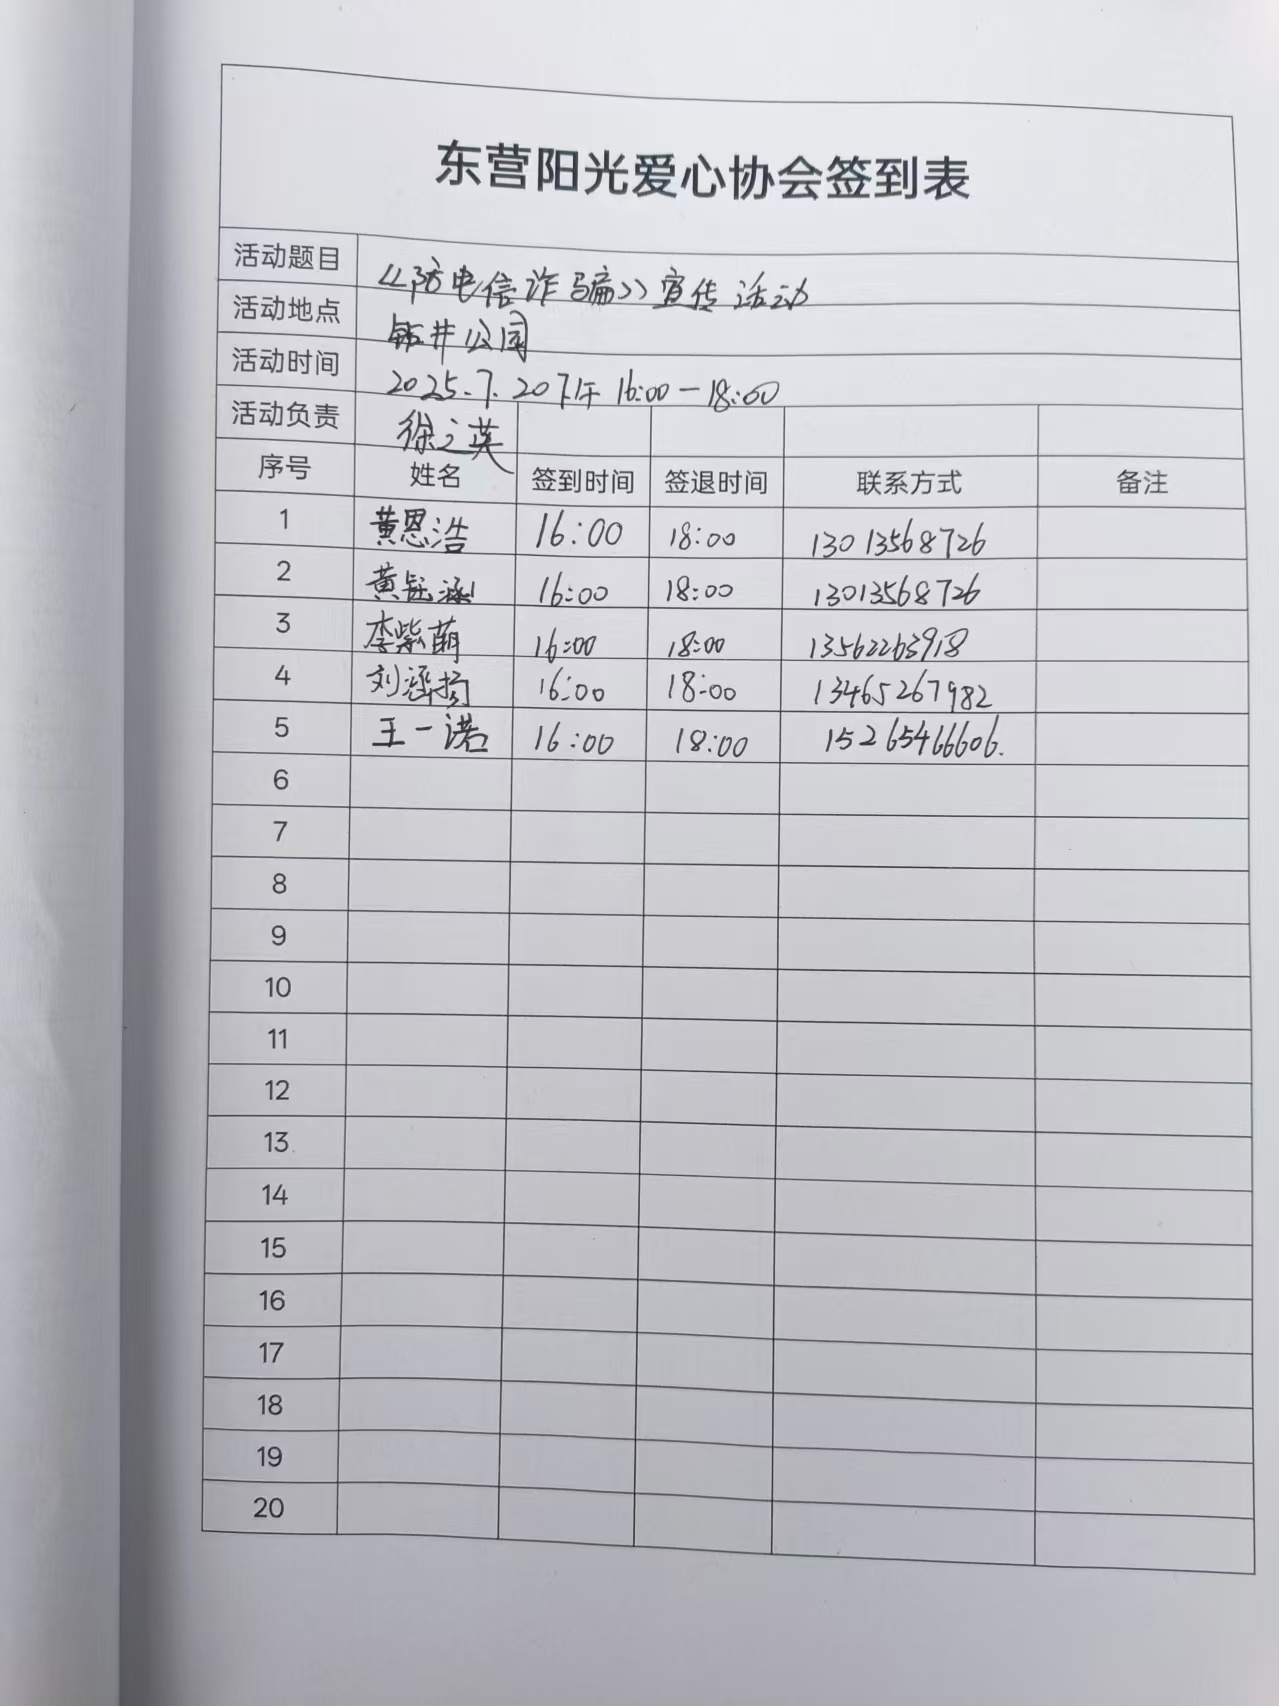 东营阳光爱心协会签到表
活动题目 《防电信诈骗》宣传活动
活动地点 钻井公园
活动时间 2025.7.20下午16:00—18:00
活动负责 徐之英
序号 姓名 签到时间 签退时间 联系方式 备注
1 黄恩浩 16:00 18:00 13013568726
2 黄钰涵 16:00 18:00 13013568726
3 李紫萌 16:00 18:00 13562263918
4 刘 16:00 18:00 13465267982
5 王一诺 16:00 18:00 15265466606.
6
7
8
9
10
11
12
13
14
15
16
17
18
19
20